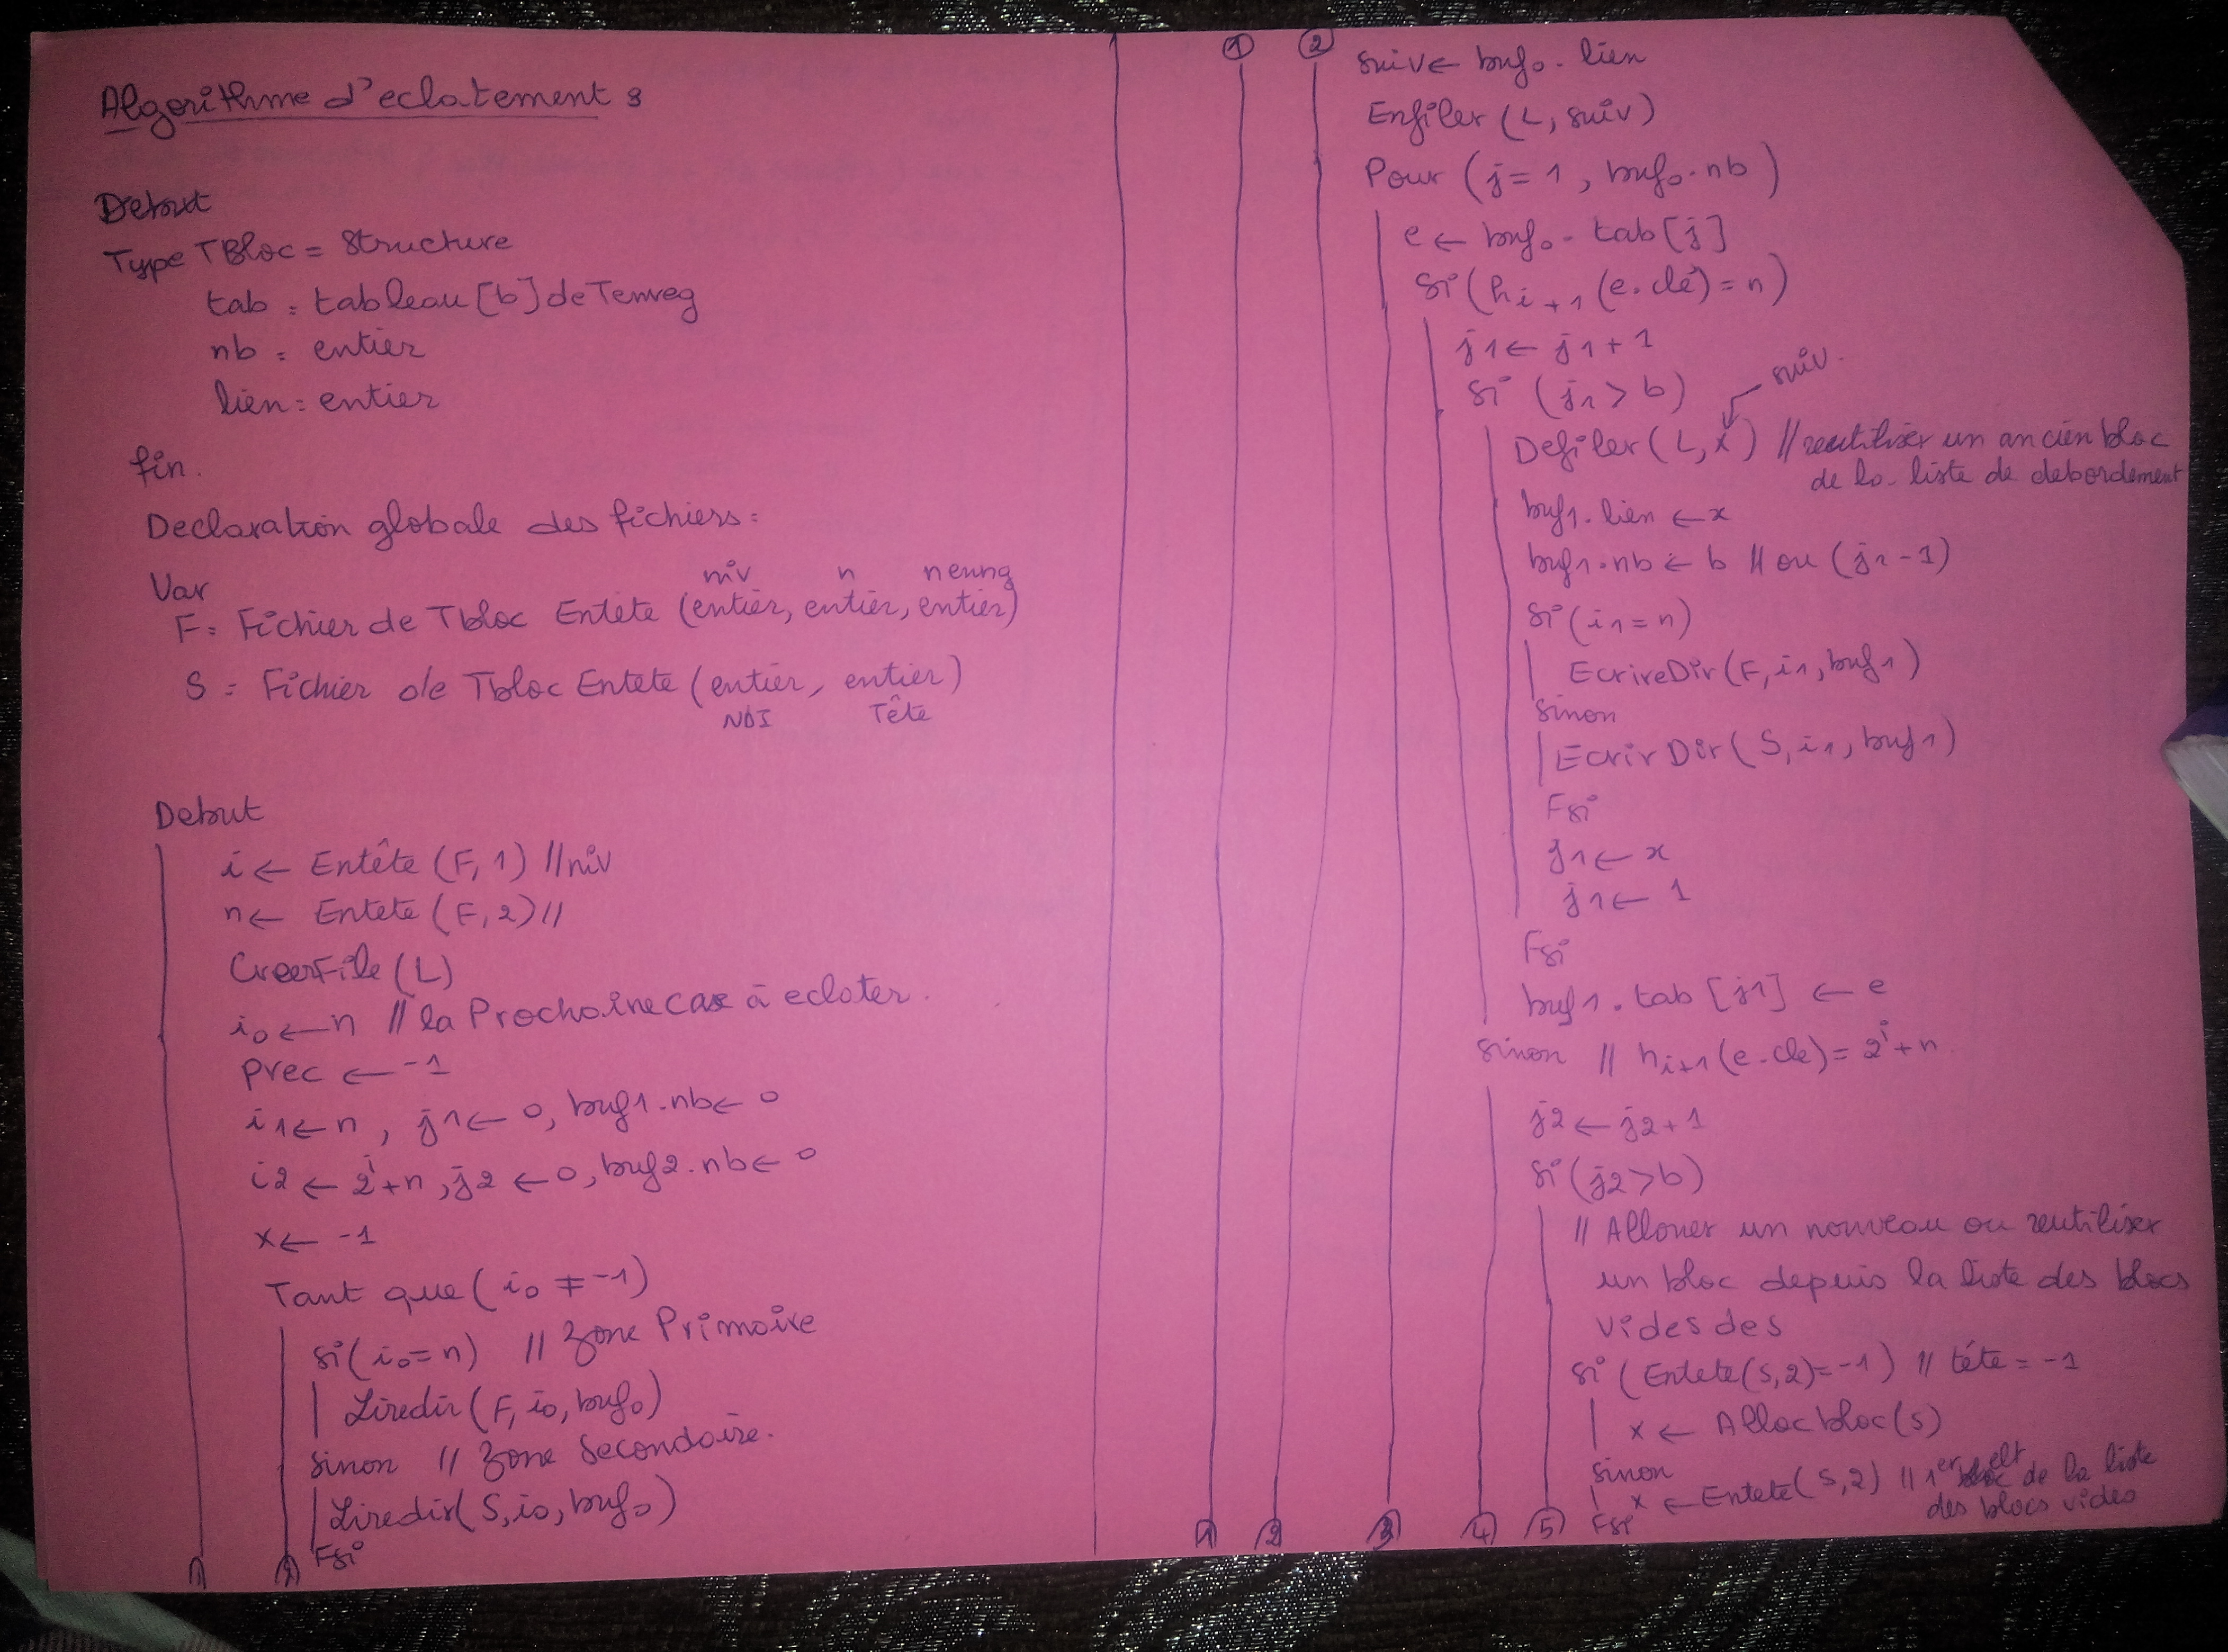 Algorithme d'eclatement :
Debut
Type TBloc = Structure
tab : tableau [b] de Tenreg
nb : entier
lien : entier
fin.
Declaration globale des fichiers :
Var
niv n nenrg
F : Fichier de Tbloc Entete (entier, entier, entier)
S : Fichier de Tbloc Entete (entier, entier)
NDI Tête
Debut
i ← Entête (F, 1) // niv
n ← Entete (F, 2) //
CreerFile (L)
i0 ← n // la Prochaine case à eclater.
Prec ← -1
i1 ← n, j1 ← 0, buf1.nb ← 0
i2 ← 2^i + n, j2 ← 0, buf2.nb ← 0
x ← -1
Tant que (i0 ≠ -1)
Si (i0 = n) // Zone Primaire
Liredir (F, i0, buf0)
Sinon // Zone Secondaire.
Liredir (S, i0, buf0)
Fsi
1 2
① ②
suiv ← buf0.lien
Enfiler (L, suiv)
Pour (j = 1, buf0.nb)
e ← buf0.tab [j]
Si (h i+1 (e.clé) = n)
j1 ← j1 + 1
Si (j1 > b)
suiv.
Defiler (L, x) // reutiliser un ancien bloc
de la liste de debordement
buf1.lien ← x
buf1.nb ← b // ou (j1 - 1)
Si (i1 = n)
EcrireDir (F, i1, buf1)
Sinon
EcrirDir (S, i1, buf1)
Fsi
j1 ← x
j1 ← 1
Fsi
buf1.tab [j1] ← e
Sinon // h i+1 (e.cle) = 2^i + n
j2 ← j2 + 1
Si (j2 > b)
// Allouer un nouveau ou reutiliser
un bloc depuis la liste des blocs
vides des
Si (Entete (S, 2) = -1) // tête = -1
x ← Allocbloc (S)
Sinon
x ← Entete (S, 2) // 1er elt de la liste
des blocs vides
Fsi
1 2 3 4 5